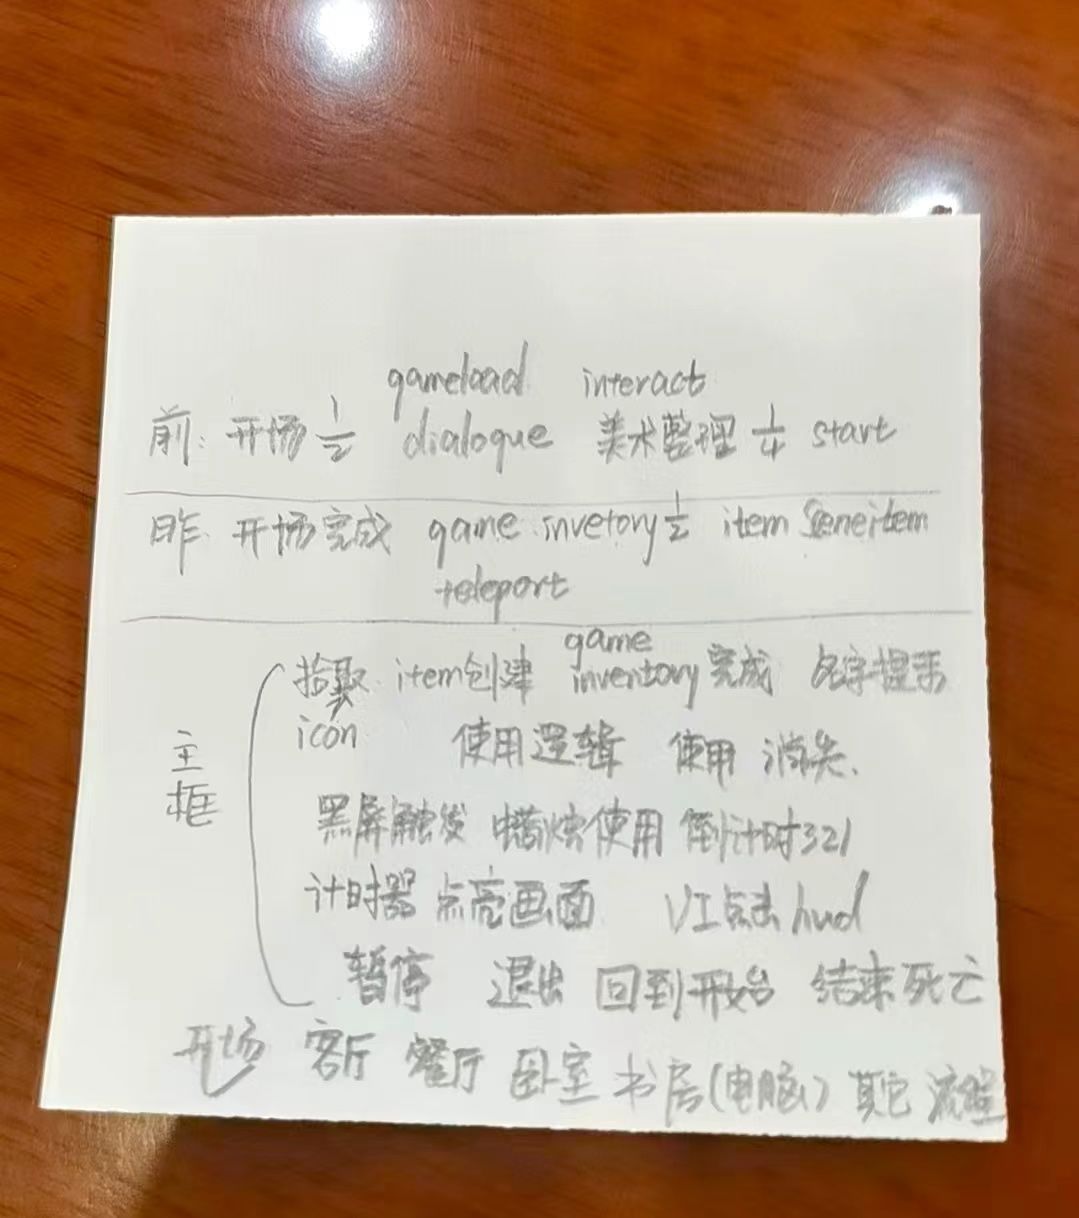 gameload interact
前: 开场 1/2 dialogue 美术整理 1/4 start
昨. 开场完成 game invetory 1/2 item Sceneitem
teleport
game
拾取 item创建 inventory 完成 名字提示
icon 使用逻辑 使用 消失.
主框
黑屏触发 蜡烛使用 倒计时321
计时器 点亮画面 UI点击 hud
暂停 退出 回到开始 结束 死亡
开场 客厅 餐厅 卧室 书房(电脑) 其它 流程